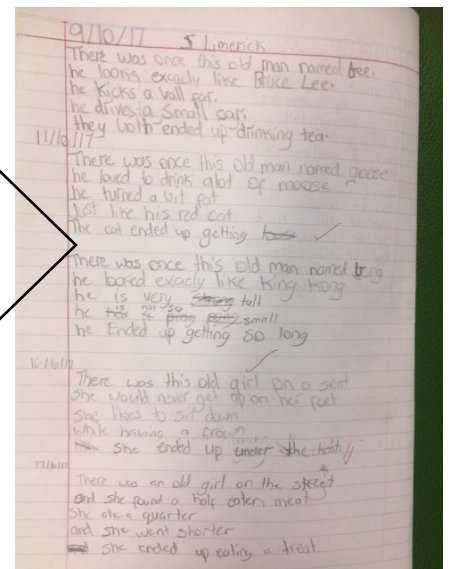 9/10/17 5 Limerick
There was once this old man named bee.
he looks exacly like Bruce Lee.
he Kicks a ball far.
he drives a small car.
they both ended up drinking tea.
11/10/17
There was once this old man named goose
he loved to drink alot of moose
he turned a bit fat
Just like his red cat
The cat ended up getting
There was once this old man named
he looked exacly like King Kong
he is very tall
he is not so small
he Ended up getting so long
There was this old girl on a seat
She would never get up on her feet
she likes to sit down
while having a frown
she ended up the
There was an old girl on the street
and she found a half eaten meat
She ate a quarter
and she went shorter
she ended up eating a treat